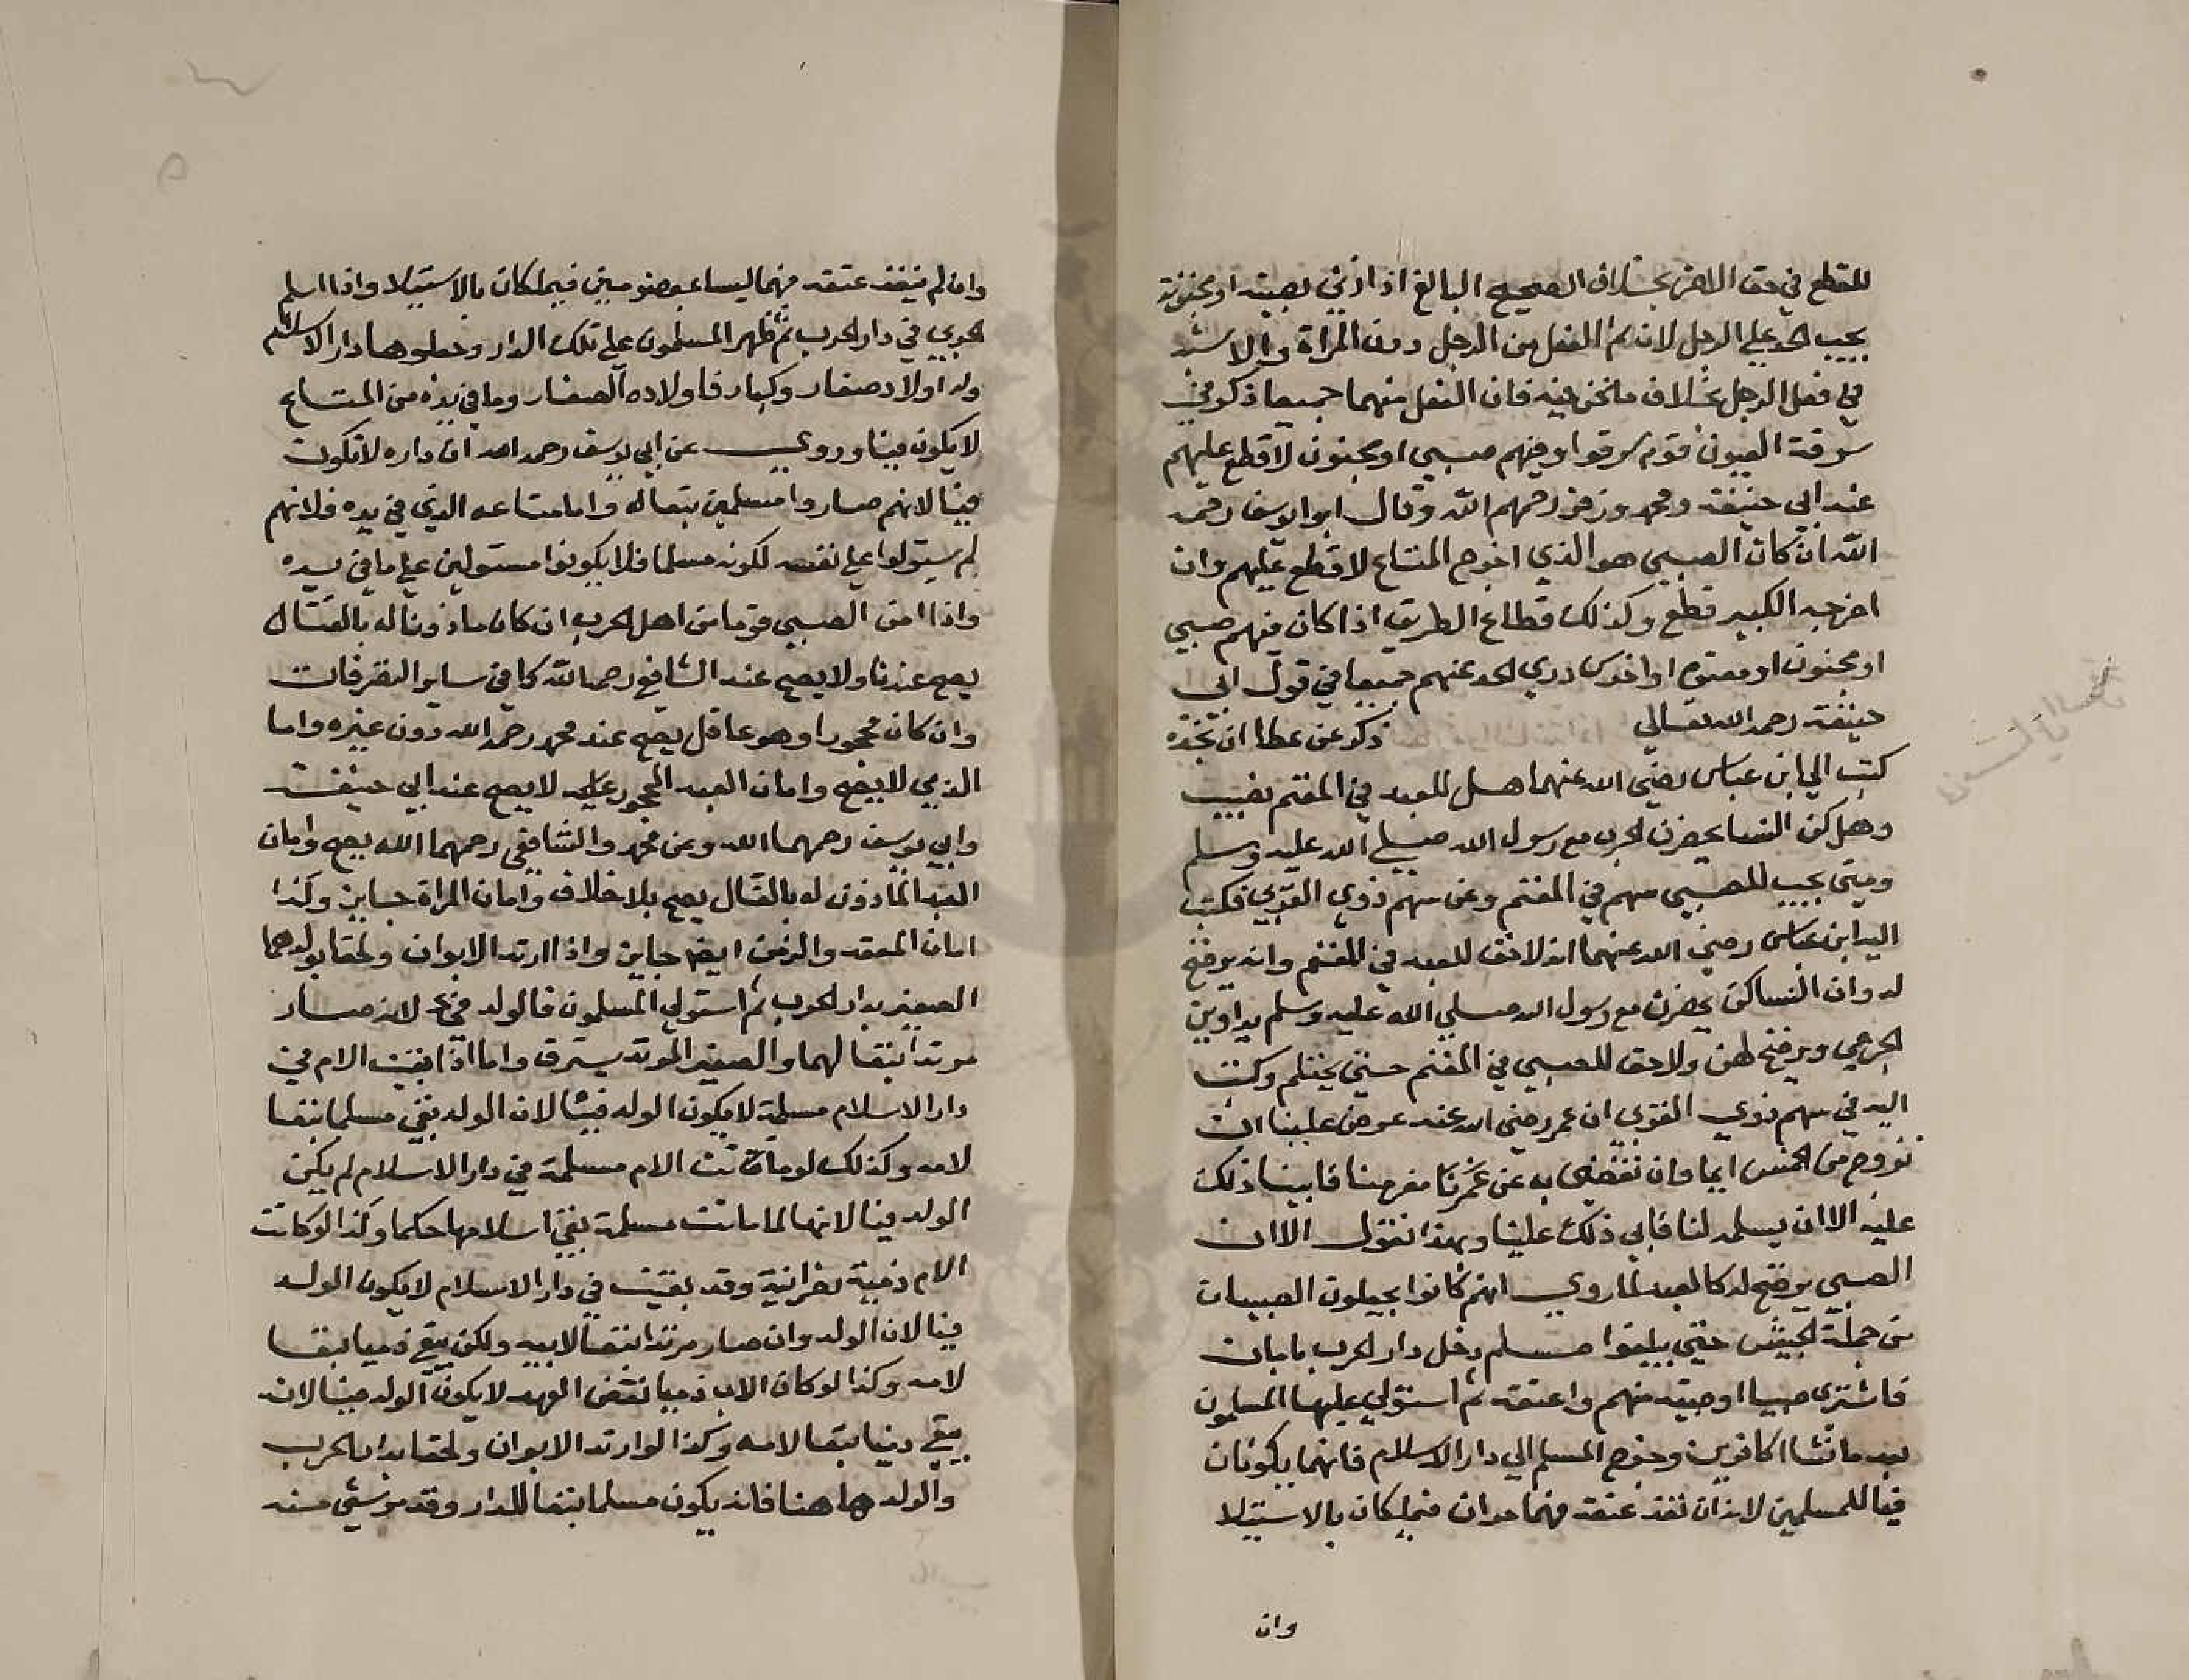 للقطع في حق الاخر بخلاف الصحيح البالغ اذا زني بصبية او مجنونة
يجب الحد علي الرجل لانه ثم الفعل من الرجل دون المراة ولا شبهة
في فعل الرجل بخلاف ما نحن فيه فان الفعل منهما جميعا ذكر في
سرقة العيون قوم سرقوا وفيهم صبي او مجنون لا قطع عليهم
عند ابي حنيفة ومحمد وزفر رحمهم الله وقال ابو يوسف رحمه
الله ان كان الصبي هو الذي اخرج المتاع لا قطع عليهم وان
اخرجه الكبير قطع وكذلك قطاع الطريق اذا كان فيهم صبي
او مجنون او معتوه او اخرس دري الحد عنهم جميعا في قول ابي
حنيفة رحمه الله تعالي ذكر عن عطا ان نجدة
كتب الي ابن عباس رضي الله عنهما هل للعبد في المغنم نصيب
وهل كن النسا يحضرن الحرب مع رسول الله صلي الله عليه وسلم
ومتي يجب للصبي سهم في المغنم وعن سهم ذوي القربي فكتب
اليه ابن عباس رضي الله عنهما انه لا حق للعبد في المغنم وانه يرضخ
له وان النسا كن يحضرن مع رسول الله صلي الله عليه وسلم يداوين
الجرحي ويرضخ لهن ولا حق للصبي في المغنم حتي يحتلم وكتب
اليه في سهم ذوي القربي ان عمر رضي الله عنه عرض علينا ان
نزوج من الخمس ايما وان نقضي به عن غرمنا فابينا ذلك
عليه الا ان يسلمه لنا فابي ذلك علينا وبهذا نقول الا ان
الصبي يرضخ له كالعبد لما روي انهم كانوا يجعلون الصبيان
من جملة الجيش حتي يبلغوا مسلم دخل دار الحرب بامان
فاشتري صبيا او صبية منهم واعتقه ثم استولي عليها المسلمون
بعد ما نشا كافرين وخرج المسلم الي دار الاسلام فانهما يكونان
فيا للمسلمين لانه ان نفذ عتقه فهما حران فيملكان بالاستيلا
وان
وان لم ينفذ عتقه فهما ليسا بمعصومين فيملكان بالاستيلا واذا اسلم
الحربي في دار الحرب ثم ظهر المسلمون علي تلك الدار وجعلوها دار الاسلام
وله اولاد صغار وكبار فاولاده الصغار وما في يده من المتاع
لا يكون فيئا وروي عن ابي يوسف رحمه الله ان داره لا تكون
فيئا لانهم صاروا مسلمين تبعا له واما متاعه الذي في يده فلانهم
لم يستولوا علي نفسه لكونه مسلما فلا يكونوا مستولين علي ما في يده
واذا امن الصبي قوما من اهل الحرب ان كان ماذونا له بالقتال
يصح عندنا ولا يصح عند الشافعي رحمه الله كما في ساير التصرفات
وان كان محجورا وهو عاقل يصح عند محمد رحمه الله دون غيره واما
الذمي لا يصح وامان العبد المحجور عليه لا يصح عند ابي حنيفة
وابي يوسف رحمهما الله وعن محمد والشافعي رحمهما الله يصح وامان
العبد الماذون له بالقتال يصح بلا خلاف وامان المراة جايز وكذا
امان المقعد والزمن ايضا جايز واذا ارتد الابوان ولحقا بولدهما
الصغير بدار الحرب ثم استولي المسلمون فالولد فيء لانه صار
مرتدا تبعا لهما والصغير المرتد يسترق واما اذا بقيت الام في
دار الاسلام مسلمة لا يكون الولد فيئا لان الولد بقي مسلما تبعا
لامه وكذلك لو ماتت الام مسلمة في دار الاسلام لم يكن
الولد فيئا لانها لما ماتت مسلمة بقي اسلامها حكما وكذا لو كانت
الام ذمية نصرانية وقد بقيت في دار الاسلام لا يكون الولد
فيئا لان الولد وان صار مرتدا تبعا لابيه ولكن بقي ذميا تبعا
لامه وكذا لو كان الاب ذميا نقض العهد لا يكون الولد فيئا لانه
يبقي ذميا تبعا لامه وكذا لو ارتد الابوان ولحقا بدار الحرب
والولد هاهنا فانه يكون مسلما تبعا للدار وقد مر شي منه